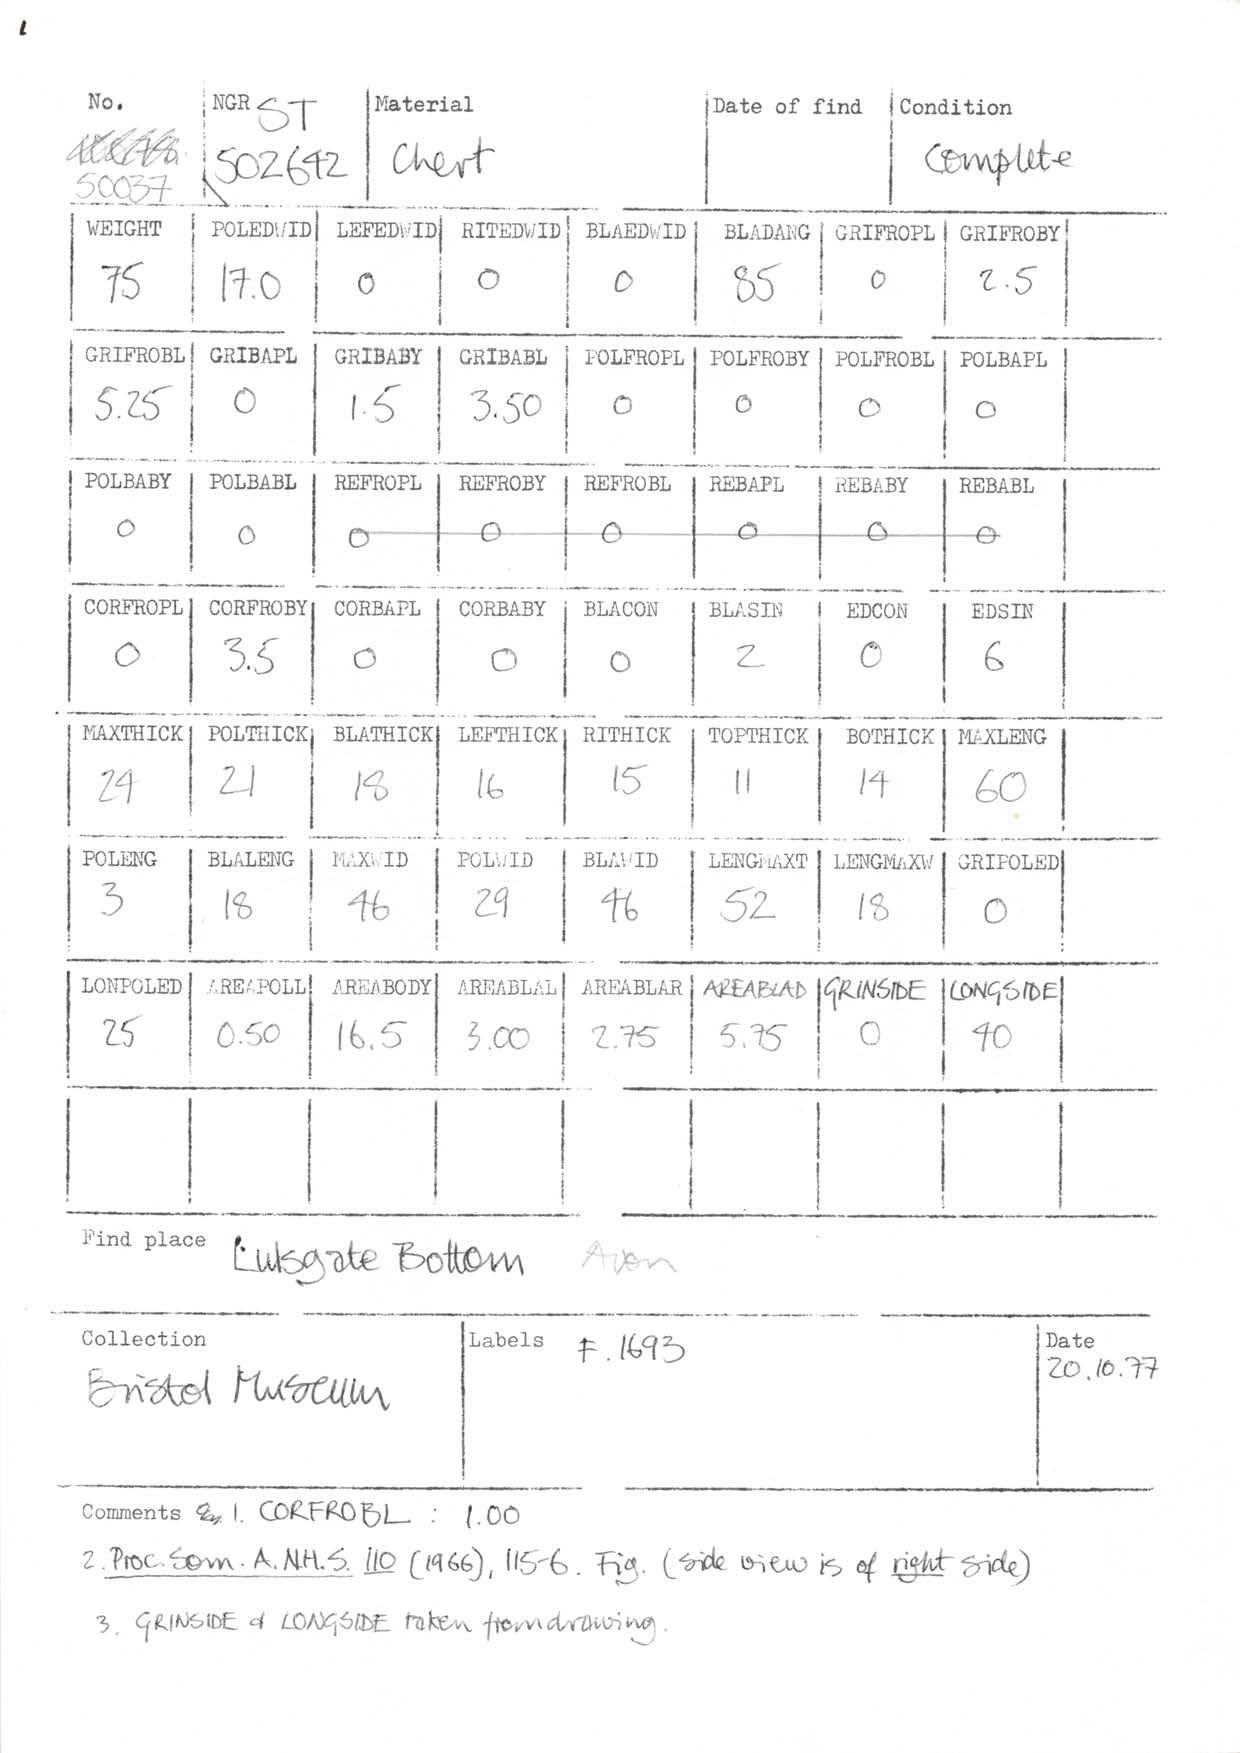 No. NGR ST Material Date of find Condition
50037 502642 Chert Complete
WEIGHT POLEDWID LEFEDWID RITEDWID BLAEDWID BLADANG GRIFROPL GRIFROBY
75 17.0 0 0 0 85 0 2.5
GRIFROBL GRIBAPL GRIBABY GRIBABL POLFROPL POLFROBY POLFROBL POLBAPL
5.25 0 1.5 3.50 0 0 0 0
POLBABY POLBABL REFROPL REFROBY REFROBL REBAPL REBABY REBABL
0 0 0 0 0 0 0 0
CORFROPL CORFROBY CORBAPL CORBABY BLACON BLASIN EDCON EDSIN
0 3.5 0 0 0 2 0 6
MAXTHICK POLTHICK BLATHICK LEFTHICK RITHICK TOPTHICK BOTHICK MAXLENG
24 21 18 16 15 11 14 60
POLENG BLALENG MAXWID POLWID BLAWID LENGMAXT LENGMAXW GRIPOLED
3 18 46 29 46 52 18 0
LONPOLED AREAPOLL AREABODY AREABLAL AREABLAR AREABLAD GRINSIDE LONGSIDE
25 0.50 16.5 3.00 2.75 5.75 0 40
Find place Lulsgate Bottom Avon
Collection Labels F.1693 Date
Bristol Museum 20.10.77
Comments 1. CORFROBL : 1.00
2. Proc. Som. A.N.H.S. 110 (1966), 115-6. Fig. (side view is of right side)
3. GRINSIDE & LONGSIDE taken from drawing.